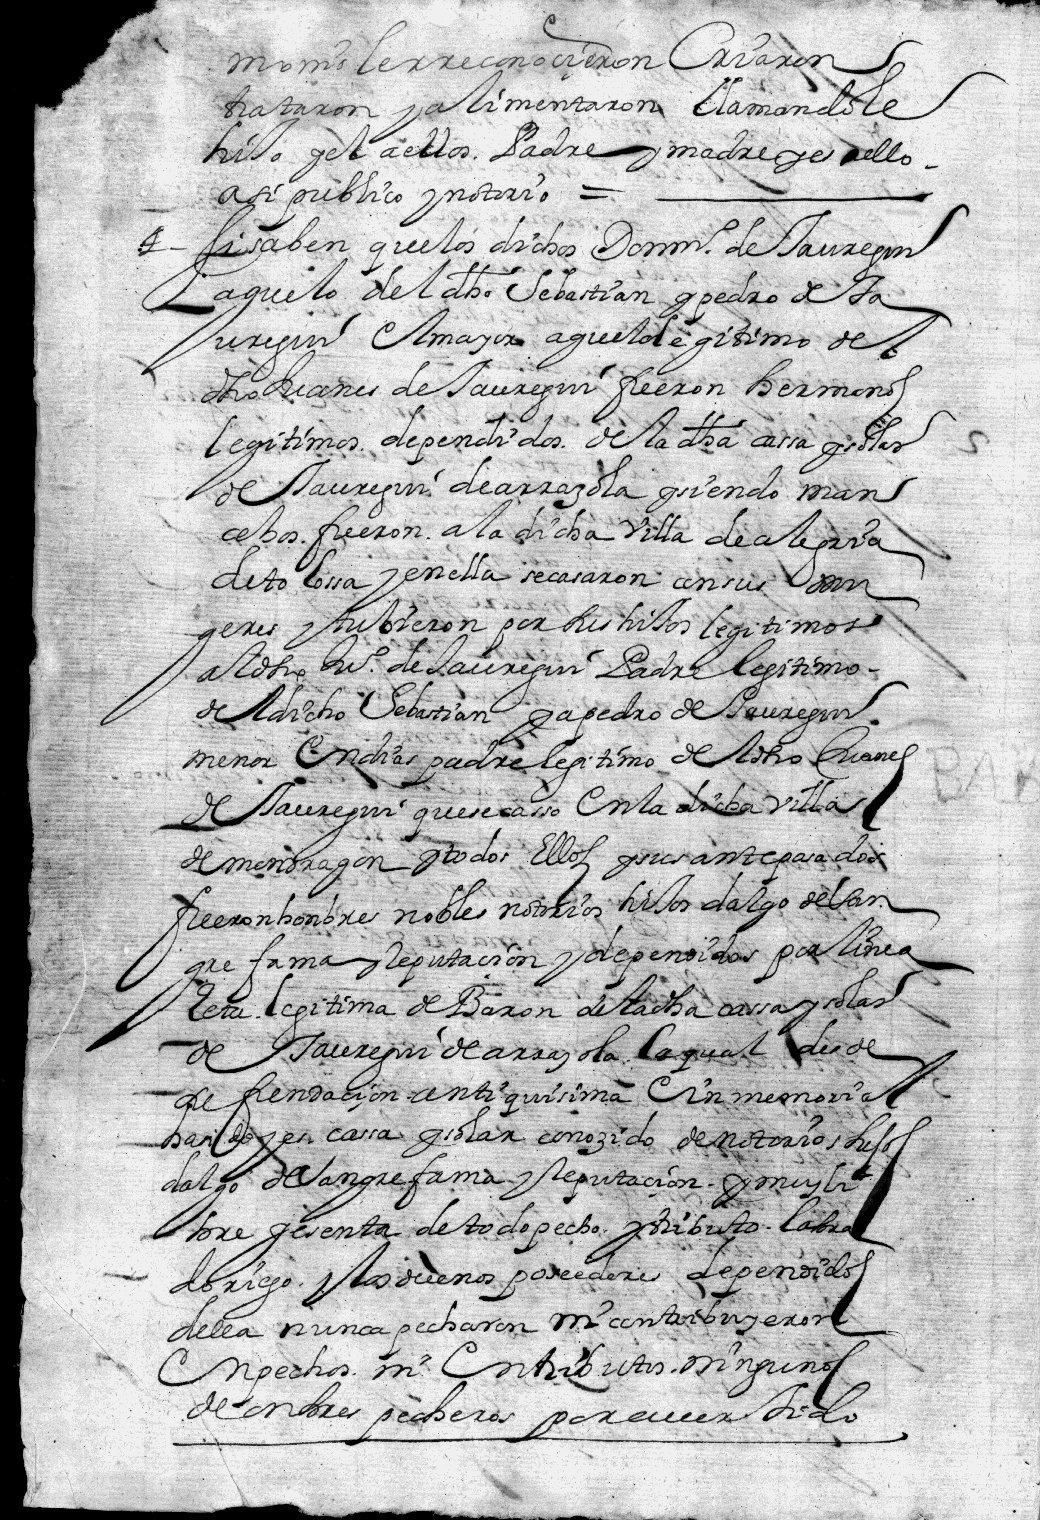 monio le rreconocieron Criaron
trataron y alimentaron llamandole
hijo y el a ellos Padre y madre y es dello
asi publico y notorio =
4 Si saben que los dichos Domin. de Jauregui
aguelo del dho Sebastian y pedro de Ja
uregui El mayor aguelo legitimo del
dho Juanes de Jauregui fueron hermanos
legitimos dependidos de la dha cassa y solar
de Jauregui de arrazola y siendo man
cebos fueron a la dicha Villa de alegria
de tolossa y en ella se casaron con sus mu
geres y tubieron por sus hijos legitimos
al dho Ju.º de Jauregui Padre legitimo
del dicho Sebastian y a pedro de Jauregui
menor En dias padre legitimo del dho Juanes
de Jauregui que se casso En la dicha villa
de mondragon y todos Ellos y sus antepasados
fueron honbres nobles notorios hijos dalgo de san
gre fama y Reputacion y dependidos por linea
Reta legitima de Baron de la dha cassa y solar
de Jauregui de arrazola la qual desde
su fundacion antiquisima E inmemorial
ha sido y es cassa y solar conozido de notorios hijos
dalgo de sangre fama y Reputacion y muy li
bre y esenta de todo pecho y tributo labra
doriego y los duenos poseedores dependidos
della nunca pecharon ni contribuyeron
En pechos ni En tributos ningunos
de onbres pecheros por auer sido